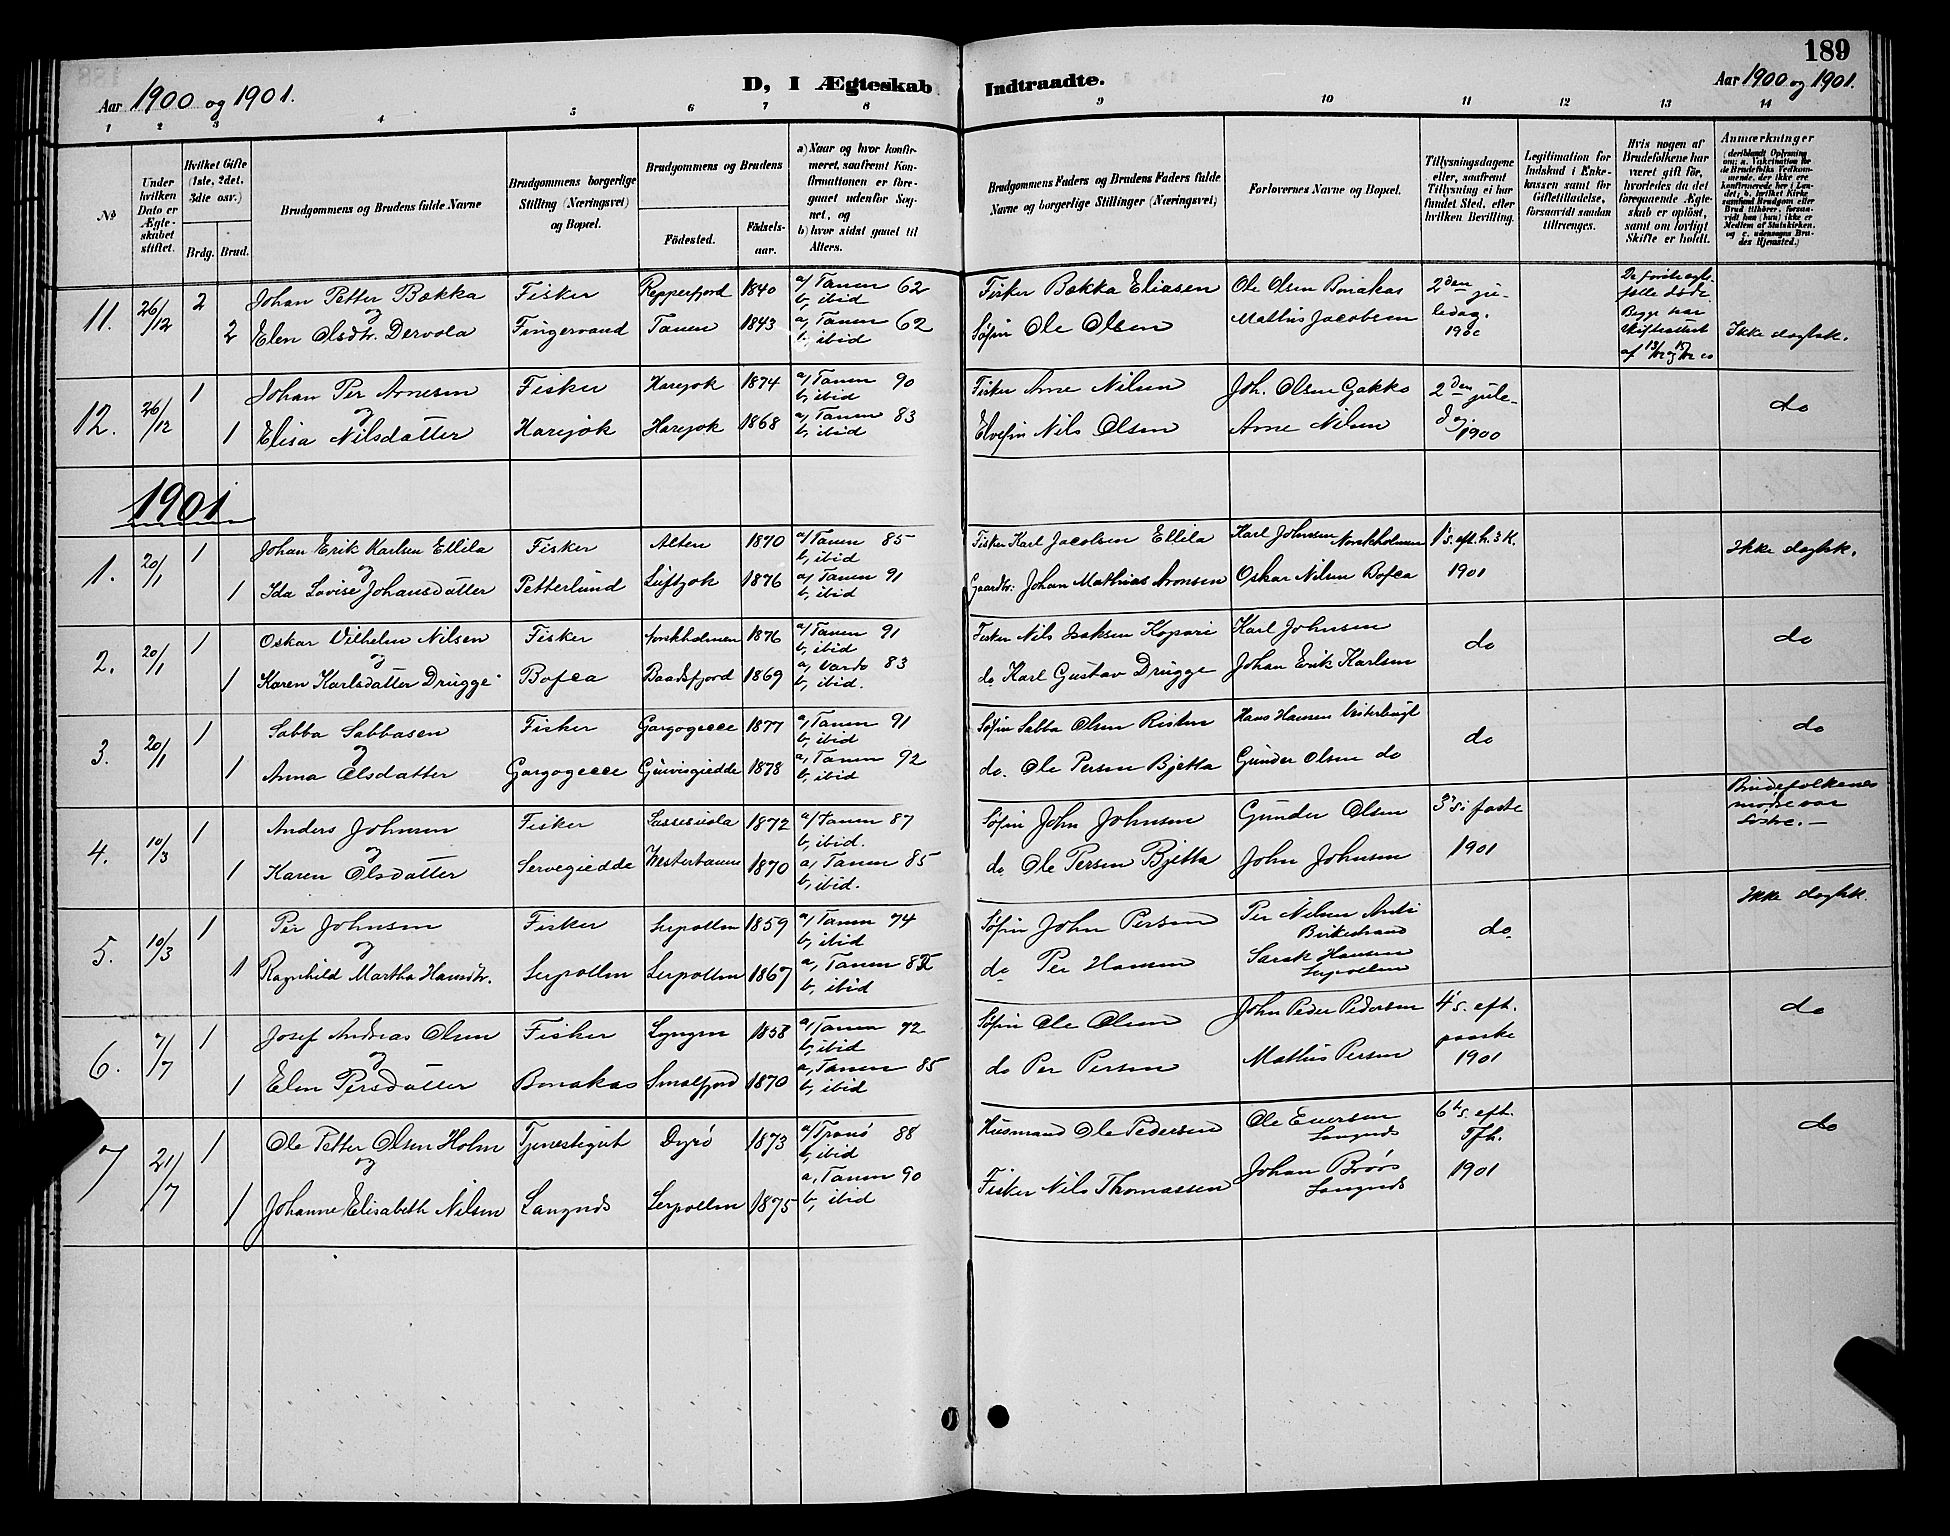 189
Aar 1900 og 1901.
D, I Ægteskab Indtraadte.
Aar 1900 og 1901.
1 2 3 4 5 6 7 8 9 10 11 12 13 14
No
Under hvilken Dato er Ægteskabet stiftet.
Hvilket Gifte (1ste, 2det, 3die osv.)
Brdg. Brud.
Brudgommens og Brudens fulde Navne
Brudgommens borgerlige Stilling (Næringsvei) og Bopæl.
Brudgommens og Brudens
Födested.
Födselsaar.
a) Naar og hvor konfirmeret, saafremt Konfirmationen er foregaaet udenfor Sognet, og
b) hvor sidst gaaet til Alters.
Brudgommens Faders og Brudens Faders fulde Navne og borgerlige Stillinger (Næringsvei)
Forlovernes Navne og Bopæl.
Tillysningsdagene eller, saafremt Tillysning ei har fundet Sted, efter hvilken Bevilling.
Legitimation for Indskud i Enkekassen samt for Giftetilladelse, forsaavidt saadan tiltrænges.
Hvis nogen af Brudefolkene har været gift før, hvorledes da det foregaaende Ægteskab er oplöst, samt om lovligt Skifte er holdt.
Anmærkninger
(deriblandt Oplysning om: a. Vakcination for de Brudefolks Vedkommende, der ikke ere konfirmerede her i Landet; b. hvilket Kirkesamfund Brudgom eller Brud tilhörer, forsaavidt han (hun) ikke er Medlem af Statskirken, og c. udensogns Brudes Hjemsted.)
11. 26/12 2 Johan Petter Bækka Fisker Repperfjord 1840 a/ Tanen 62 b, ibid Fisker Bækka Eliasen Ole Olsen Bonakas 2den ju-
og
2 Elen Olsdtr. Dervola Fingervand Tanen 1843 a, Tanen 62 b, ibid Søfin Ole Olsen Mathis Jacobsen ledag. 1900 Ikke døgtsk.
De første ægtefælle døde. Begge har skifteattest af
12. 26/12 1 Johan Per Arnesen Fisker Harejok 1874 a/ Tanen 90 b, ibid Fisker Arne Nilsen Joh. Olsen Gakko 2den jule-
og
1 Elisa Nilsdatter Harejok Harejok 1868 a, Tanen 83 b, ibid Elvefin Nils Olsen Arne Nilsen dag. 1900 do
1901
1. 20/1 1 Johan Erik Karlsen Ellila Fisker Alten 1870 a/ Tanen 85 b, ibid Fisker Karl Jacobsen Ellila Karl Johnsen Norskholmen 1 s. eft. h. 3 K. Ikke døgtsk.
og
1 Ida Lovise Johansdatter Petterlund Luftjok 1876 a, Tanen 91 b, ibid Gaardbr. Johan Mathias Aronsen Oskar Nilsen Bofca 1901
2. 20/1 1 Oskar Vilhelm Nilsen Fisker Norskholmen 1876 a/ Tanen 91 b, ibid Fisker Nils Isaksen Kopari Karl Johnsen do do
og
1 Karen Karlsdatter Drugge Bofca Baadsfjord 1869 a, Vardø 83 b, ibid. do Karl Gustav Drugge Johan Erik Karlsen
3. 20/1 1 Sabba Sabbasen Fisker Gargogecce 1877 a, Tanen 91 b, ibid Søfin Sabba Olsen Risten Hans Hansen do do
og
1 Anna Olsdatter Gargogecce Guivisgiedde 1878 a, Tanen 92 b, ibid do. Ole Persen Bjetta Gunder Olsen do
4. 10/3 1 Anders Johnsen Fisker 1872 a/ Tanen 87 b, ibid. Søfin John Johnsen Gunder Olsen 3 s. i faste Brudefolkenes mødre var søstre.-
og
1 Karen Olsdatter Servegiedde Vestertanen 1870 a, Tanen 85 b, ibid. do Ole Persen Bjetta John Johnsen 1901
5. 10/3 1 Per Johnsen Fisker Seipollen 1859 a/ Tanen 74 b, ibid Søfin John Persen Per Nilsen Anti Birkestrand do Ikke døgtsk.
og
1 Ragnhild Martha Hansdtr. Seipollen Seipollen 1867 a, Tanen 82 b, ibid do Per Hansen Sarak Hansen Seipollen
6. 7/7 1 Josef Andreas Olsen Fisker Lyngen 1858 a/ Tanen 72 b, ibid Søfin Ole Olsen John Peder Pedersen 4 s. eft. do
og
1 Elen Persdatter Bonakas Smalfjord 1870 a, Tanen 85 b, ibid do Per Persen Mathis Persen paaske 1901
7 21/7 1 Ole Petter Olsen Holm Tjenestegut Dyrö 1873 a/ Tranö 88 b, ibid Husmand Ole Pedersen Ole Eversen Langnæs 6 s. eft. Tfh. do
og
1 Johanne Elisabeth Nilsen Langnæs Seipollen 1875 a, Tanen 90 b, ibid Fisker Nils Thomassen Johan Broos Langnæs 1901